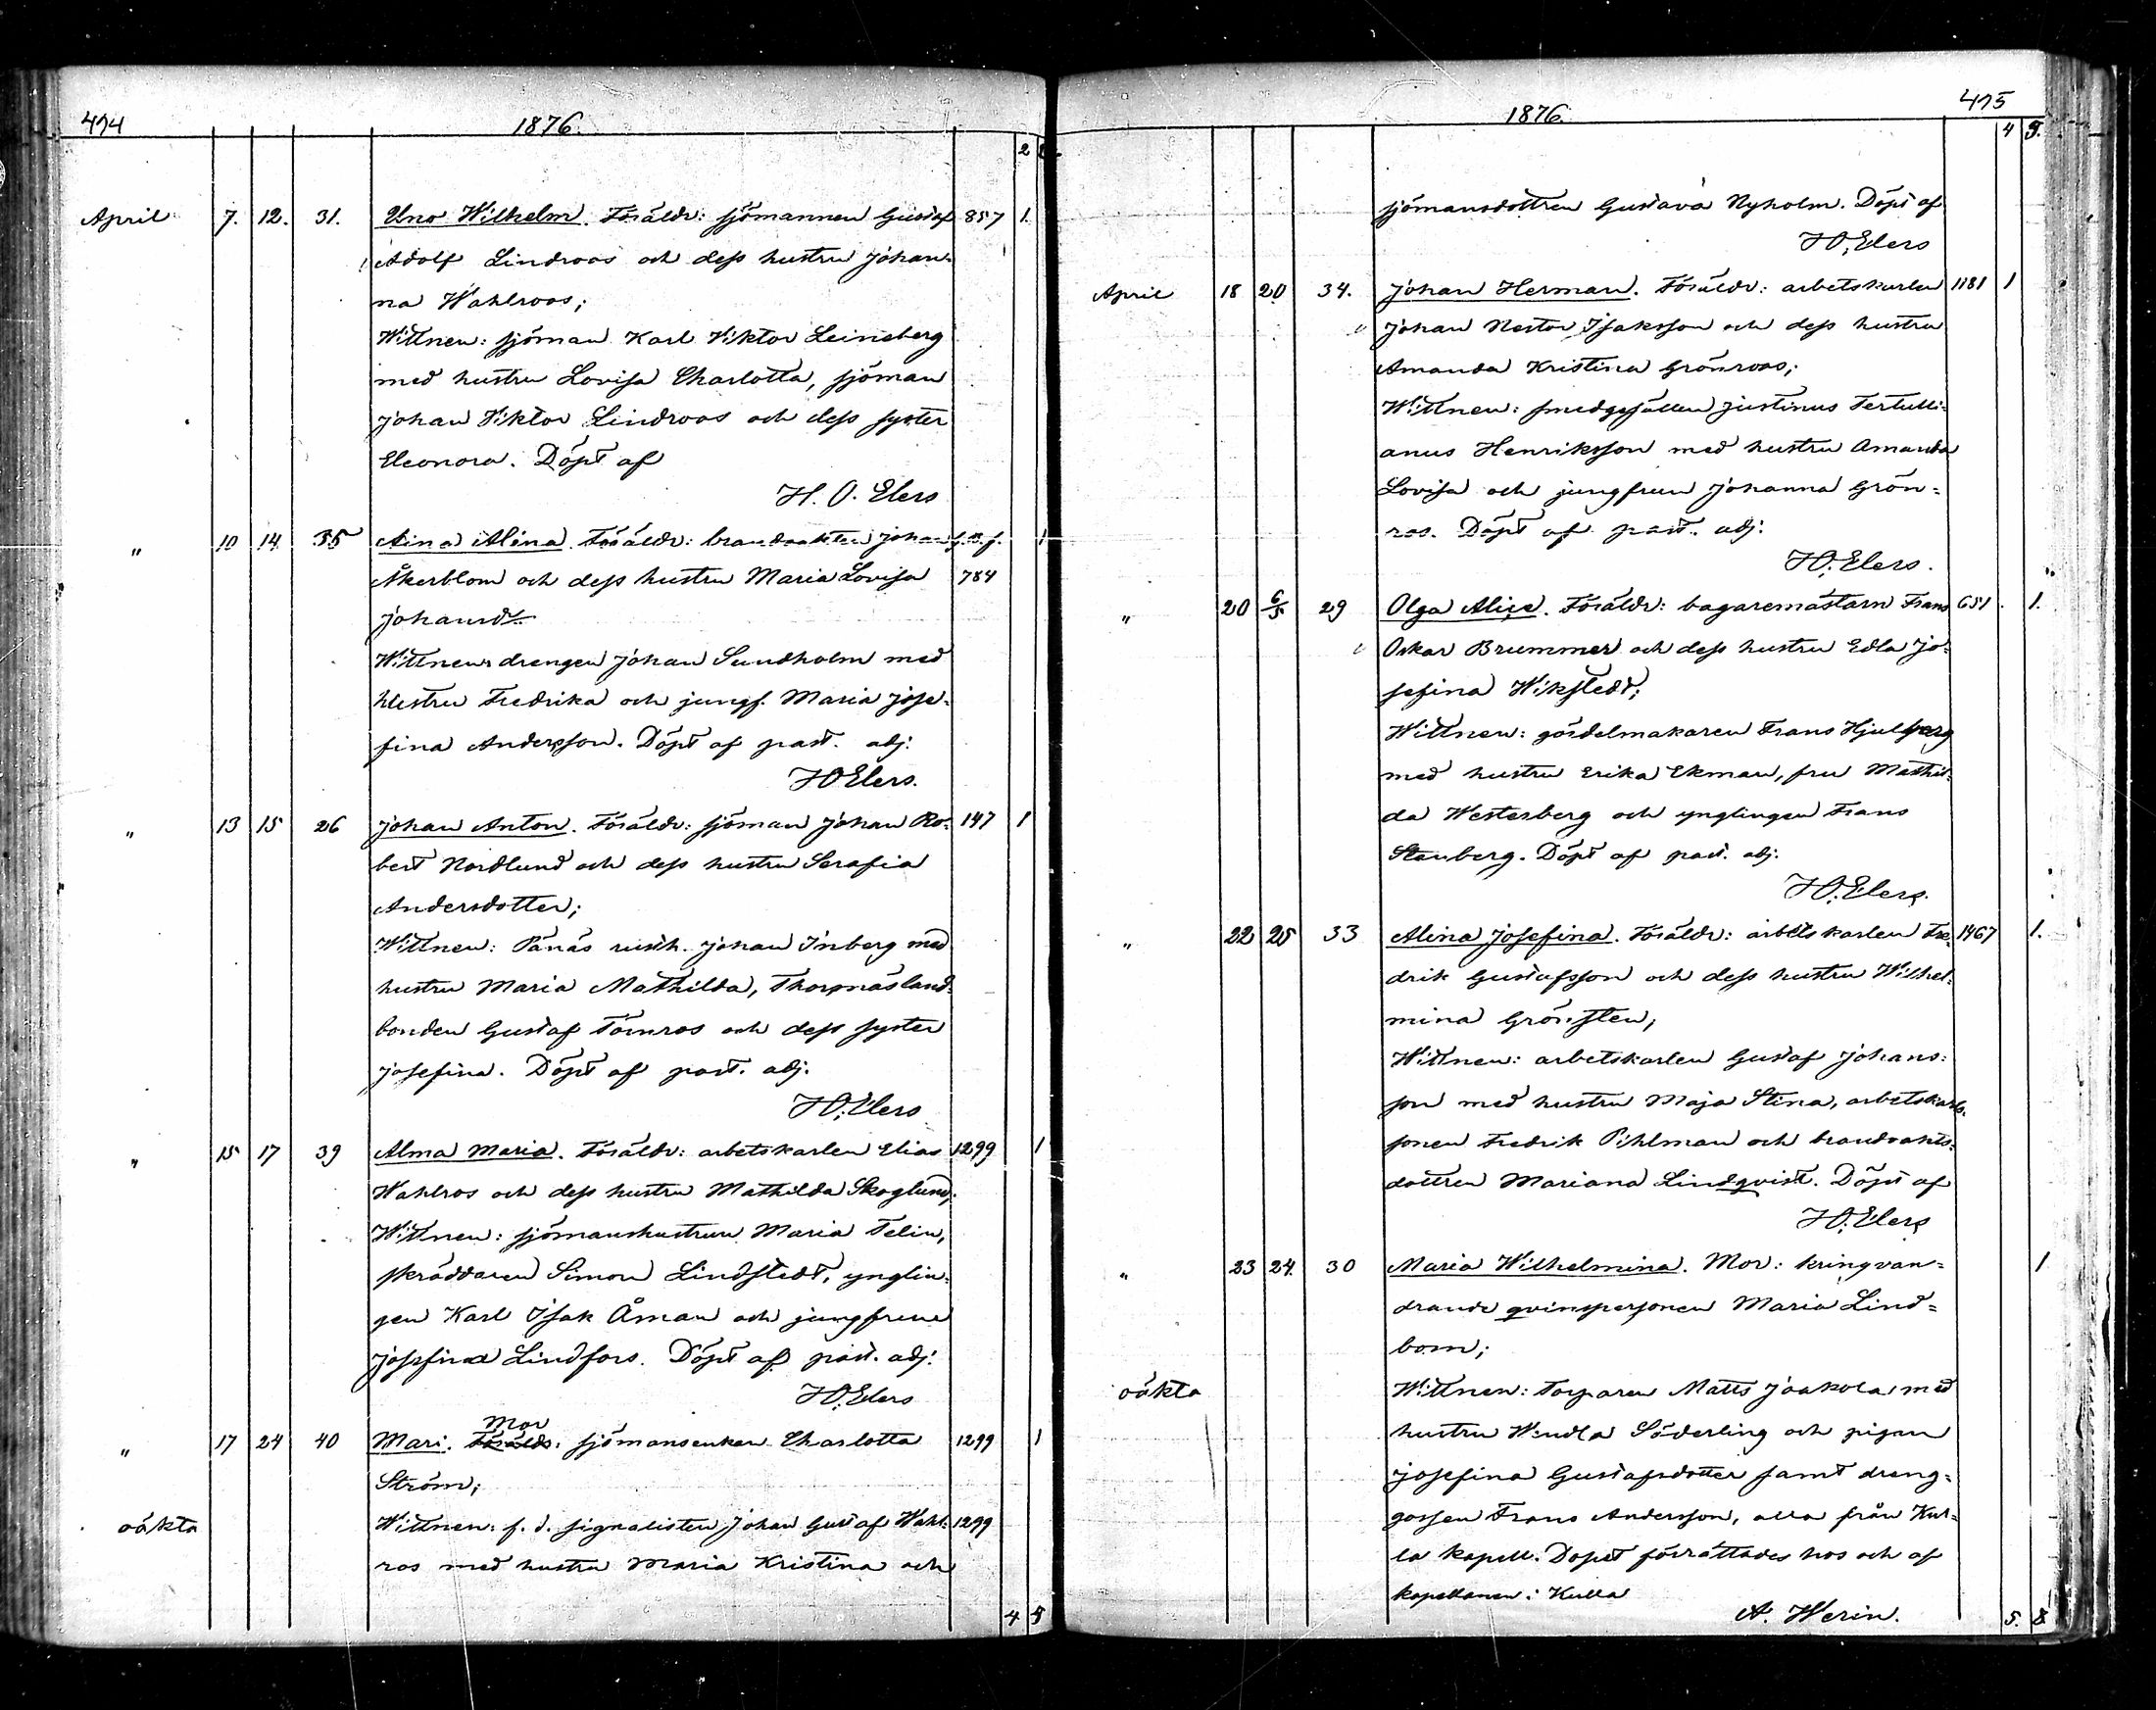 474
1876.
2
April 7. 12. 31. Uno Wilhelm. Föräldr: sjömannen Gustaf 857 1.
Adolf Lindroos och dess hustru Johan-
na Wahlroos;
Wittnen: sjöman Karl Viktor Leineberg
med hustru Lovisa Charlotta, sjöman
Johan Viktor Lindroos och dess syster
Eleonora. Döpt af
H. O. Elers
" 10 14 35 Aina Alina. Föräldr: brandvakten Johan 1
Åkerblom och dess hustru Maria Lovisa 784
Johansd/r
Wittnen: drengen Johan Sundholm med
hustru Fredrika och jungf. Maria Jose-
fina Andersson. Döpt af past. adj.
HOElers.
" 13 15 26 Johan Anton. Föräldr: sjöman Johan Ro- 147 1
bert Nordlund och dess hustru Serafia
Andersdotter;
Wittnen: Pänäs rusth. Johan Inberg med
hustru Maria Mathilda, Thorsnäs land-
bonden Gustaf Törnros och dess syster
Josefina. Döpt af past. adj.
HO. Elers
" 15 17 39 Alma Maria. Föräldr: arbetskarlen Elias 1299 1
Wahlros och dess hustru Mathilda Skoglund;
Wittnen: sjömanshustrun Maria Telin,
skräddaren Simon Lindstedt, ynglin-
gen Karl Isak Åman och jungfrun
Josefina Lindfors. Döpt af past. adj.
HO. Elers
Mor
" 17 24 40 Mari. Föräldr: sjömansenkan Charlotta 1299 1
Ström;
oäkta Wittnen: f. d. signalisten Johan Gustaf Wahl- 1299
ros med hustru Maria Kristina och
4 5
475
1876.
4 5.
sjömansdottren Gustava Nyholm. Döpt af
HO. Elers
April 18 20 34. Johan Herman. Föräldr: arbetskarlen 1181 1
Johan Nestor Isaksson och dess hustru
Amanda Kristina Grönroos;
Wittnen: smedgesällen Justinus Tertulli-
anus Henriksson med hustru Amanda
Lovisa och jungfrun Johanna Grön-
ros. Döpt af past. adj.
HO. Elers.
" 20 6/5 29 Olga Alice. Föräldr: bagaremästarn Frans 651. 1.
Oskar Brummer och dess hustru Edla Jo-
sefina Wikstedt;
Wittnen: gördelmakaren Frans Hjulberg
med hustru Erika Ekman, fru Mathil-
da Westerberg och ynglingen Frans
Stenberg. Döpt af past. adj.
HO. Elers.
" 22 25 33 Alina Josefina. Föräldr: arbetskarlen Fre- 1467 1.
drik Gustafsson och dess hustru Wilhel-
mina Grönsten;
Wittnen: arbetskarlen Gustaf Johans-
son med hustru Maja Stina, arbetskarls-
sonen Fredrik Pihlman och brandvakts-
dottren Mariana Lindqvist. Döpt af
HO. Elers
" 23 24. 30 Maria Wilhelmina. Mor: kringvan- 1
drande qvinspersonen Maria Lind-
bom;
oäkta Wittnen: torparen Matts Jaakola med
hustru Wendla Söderling och pigan
Josefina Gustafsdotter samt dreng-
gossen Frans Andersson, alla från Kul-
la kapell. Dopet förrättades hos och af
kapellanen i Kulla
A. Werin.
5. 8